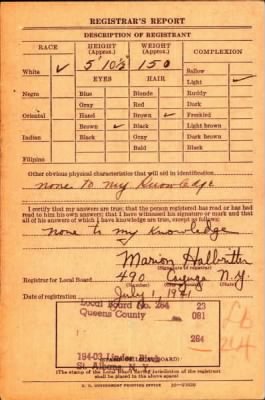 REGISTRAR'S REPORT
DESCRIPTION OF REGISTRANT
RACE HEIGHT (Approx.) WEIGHT (Approx.) COMPLEXION
White ✓ 5' 10½" 150 Sallow
EYES HAIR Light ✓
Negro Blue Blonde Ruddy
Gray Red Dark
Oriental Hazel Brown ✓ Freckled
Brown ✓ Black Light brown
Indian Black Gray Dark brown
Bald Black
Filipino
Other obvious physical characteristics that will aid in identification
none to my knowledge
I certify that my answers are true; that the person registered has read or has had
read to him his own answers; that I have witnessed his signature or mark and that
all of his answers of which I have knowledge are true, except as follows:
none to my knowledge
Marion Halbritter
(Signature of registrar)
Registrar for Local Board 490 Cayuga N.Y.
Date of registration July 1 1941
Local Board No. 264 23
Queens County 081
264
194-03 Linden Blvd.
St. Albans, N. Y.
(STAMP OF LOCAL BOARD)
(The stamp of the Local Board having jurisdiction of the registrant
shall be placed in the above space)
U. S. GOVERNMENT PRINTING OFFICE
264